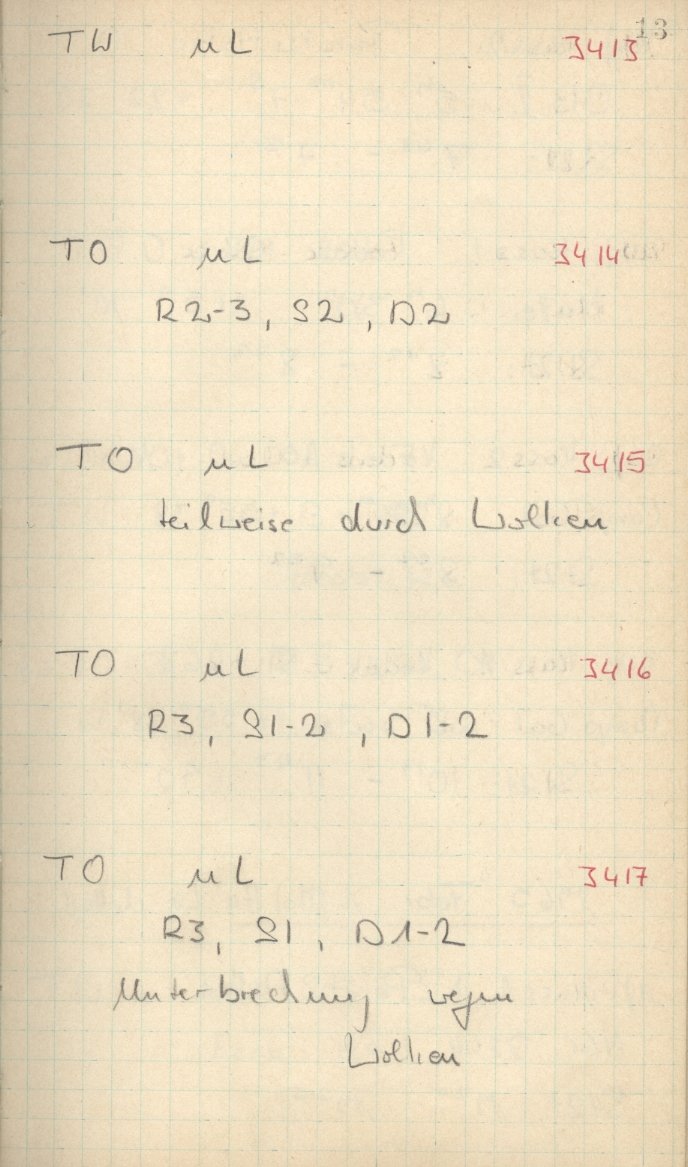 13
TW µL 3413
TO µL 3414
R2-3, S2, D2
TO µL 3415
teilweise durch Wolken
TO µL 3416
R3, S1-2, D1-2
TO µL 3417
R3, S1, D1-2
Unterbrechung wegen
Wolken